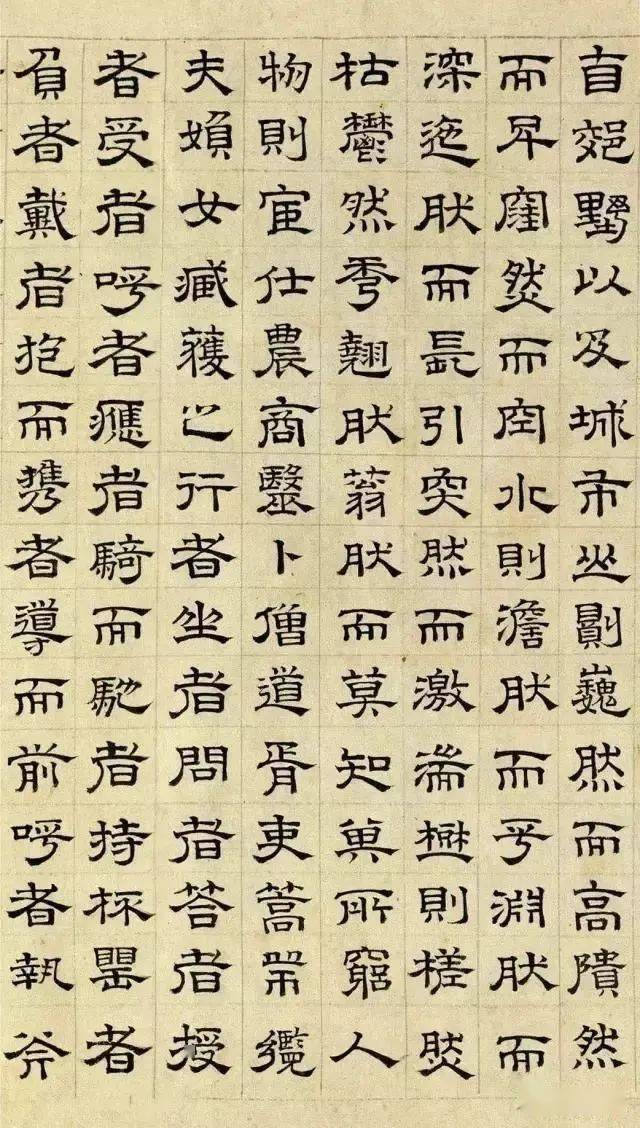 自郊墅以及城市山則巍然而高隤然
而卑窪然而空水則澹然而平淵然而
深迤然而長引突然而激湍樹則槎然
枯鬱然秀翹然蓊然而莫知其所窮人
物則宦仕農商醫卜僧道胥吏篙帥纜
夫婦女臧獲之行者坐者問者答者授
者受者呼者應者騎而馳者持杯罌者
負者戴者抱而攜者導而前呼者執斧